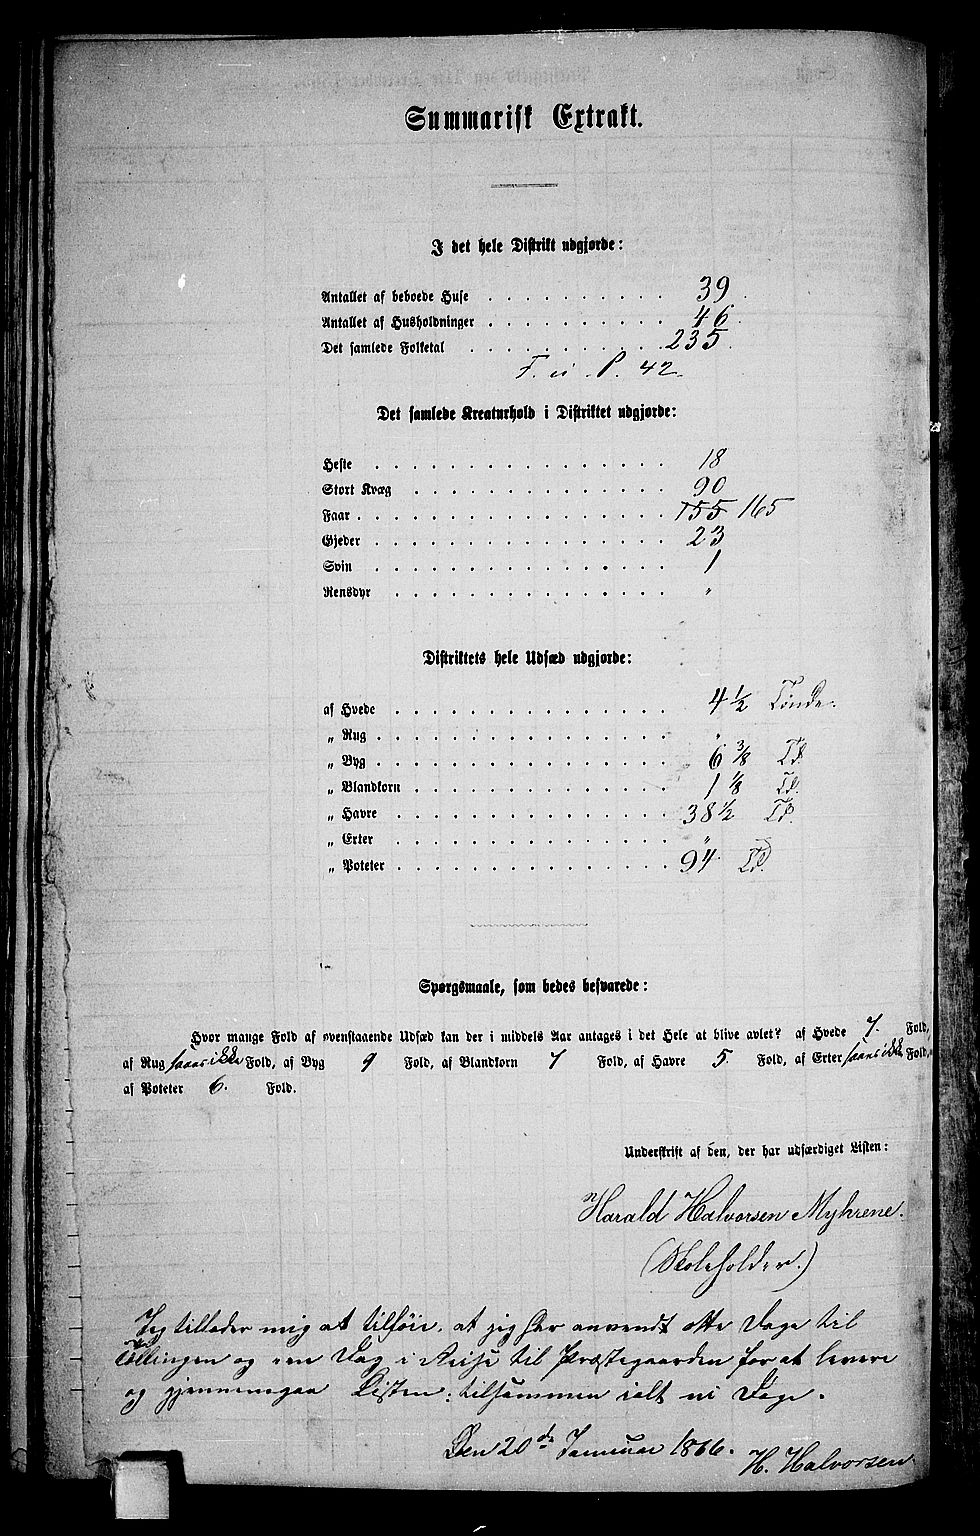 Summarisk Extrakt.
I det hele Distrikt udgjorde:
Antallet af beboede Huse . . . . . . . . . . 39
Antallet af Husholdninger . . . . . . . . . . 46.
Det samlede Folketal . . . . . . . . . . . 235.
F. ii . P. 42.
Det samlede Kreaturhold i Distriktet udgjorde:
Heste . . . . . . . . . . . . . . . . 18
Stort Kvæg . . . . . . . . . . . . . . 90
Faar . . . . . . . . . . . . . . . . . 155 165
Gjeder . . . . . . . . . . . . . . . . 23
Svin . . . . . . . . . . . . . . . . 1
Rensdyr . . . . . . . . . . . . . . . "
Distriktets hele Udsæd udgjorde:
af Hvede . . . . . . . . . . . . . . . 4 ½ Tønde.
„ Rug . . . . . . . . . . . . . . . . "
„ Byg . . . . . . . . . . . . . . . . 6 ⅜ Td.
„ Blandkorn . . . . . . . . . . . . . . 1 ⅛ Td.
„ Havre . . . . . . . . . . . . . . . 38 ½ Td.
„ Erter . . . . . . . . . . . . . . . "
„ Poteter . . . . . . . . . . . . . . . 94. Td.
Spørgsmaale, som bedes besvarede:
Hvor mange Fold af ovenstaaende Udsæd kan der i middels Aar antages i det Hele at blive avlet? af Hvede 7. Fold,
af Rug saaes ikke Fold, af Byg 9 Fold, af Blandkorn 7 Fold, af Havre 5 Fold, af Erter saaes ikke Fold,
af Poteter 6. Fold.
Underskrift af den, der har udfærdiget Listen:
Harald Halvorsen Myhrene.
(Skoleholder.)
Jeg tillader mig at tilføie, at jeg har anvendt otte Dage til
Tællingen og een Dag i Reise til Præstegaarden for at levere
og gjennemgaa Listen, tilsammen ialt ni Dage.
Den 20de Januar 1866.
H. Halvorsen